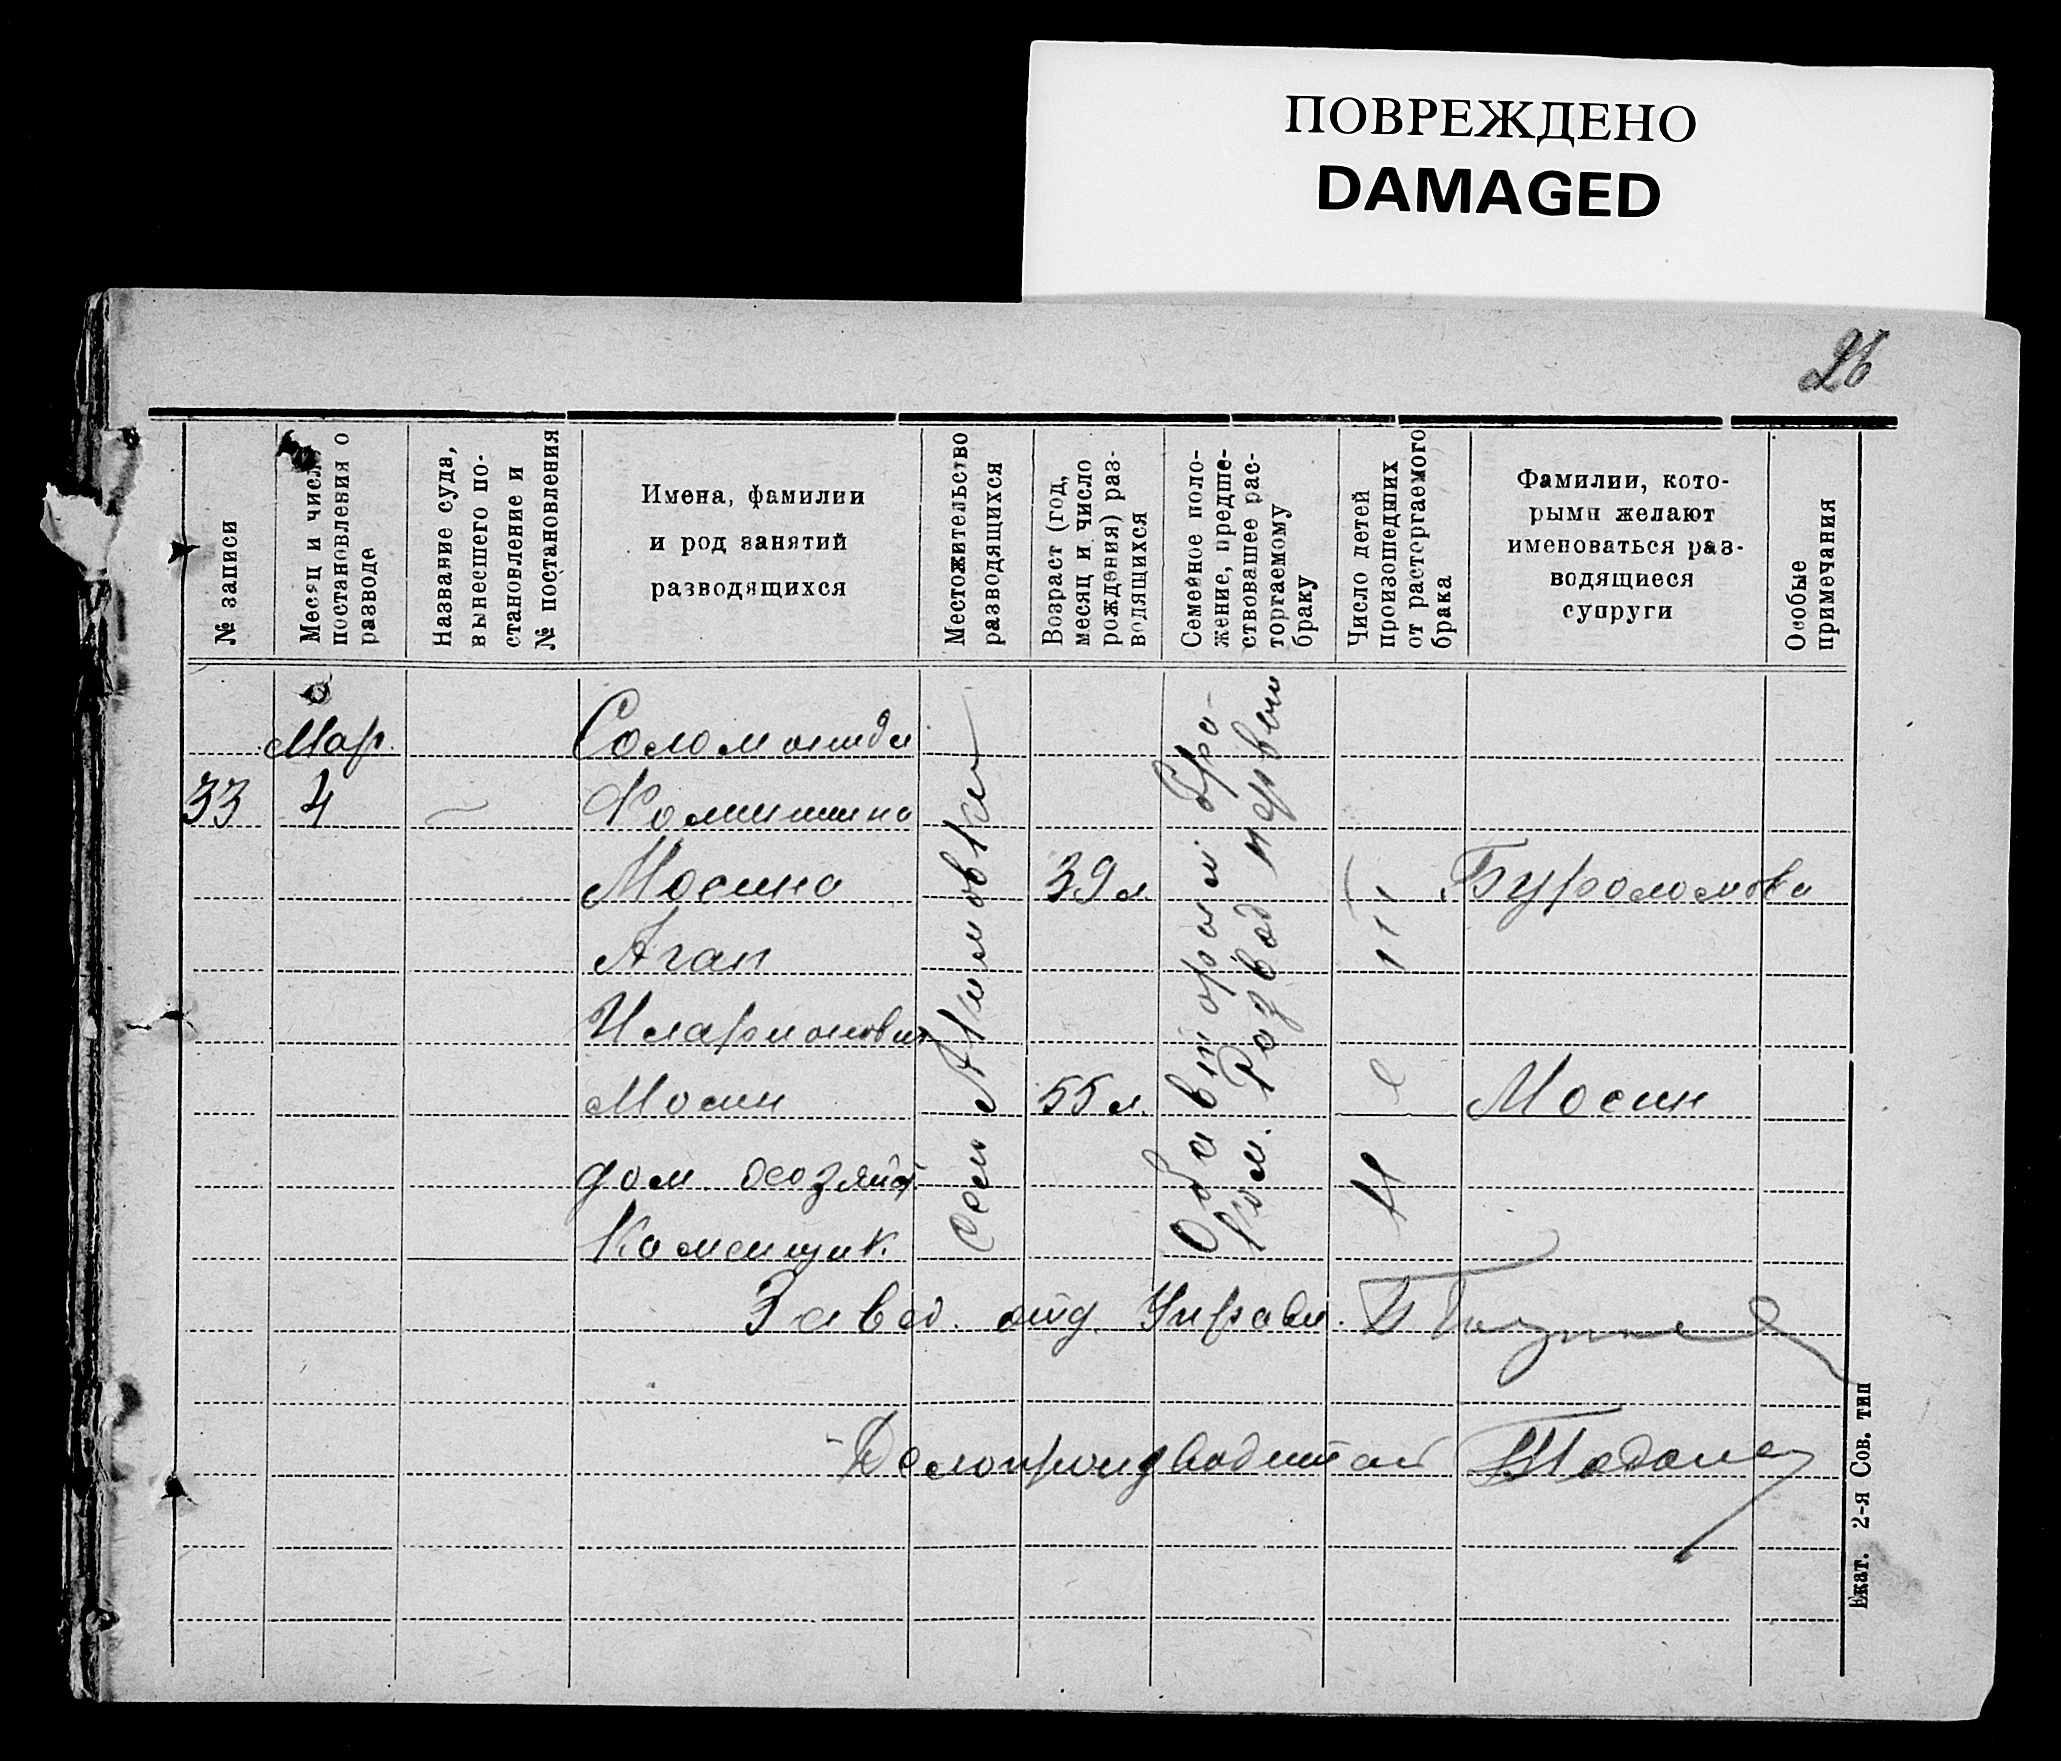 ПОВРЕЖДЕНО
DAMAGED
26
№ записи
Месяц и число
постановления о
разводе
Название суда,
вынесшего по-
становление и
№ постановления
Имена, фамилии
и род занятий
разводящихся
Местожительство
разводящихся
Возраст (год,
месяц и число
рождения) раз-
водящихся
Семейное поло-
жение, предше-
ствовавшее рас-
торгаемому
браку
Число детей
происшедших
от расторгаемого
брака
Фамилии, кото-
рыми желают
именоваться раз-
водящиеся
супруги
Особые
примечания
Мар.
33
4
Соломонида
Фоминишна
Мосина
Агап
Иларионович
Мосин
дом. хозяйст
Каменщик.
39 л.
55 л.
Оба вторым бра-
ком. Развод первый
4
Буроломова
Мосин
Завед. отд. Управл.
Делопроизводитель
Екат. 2-я Сов. тип